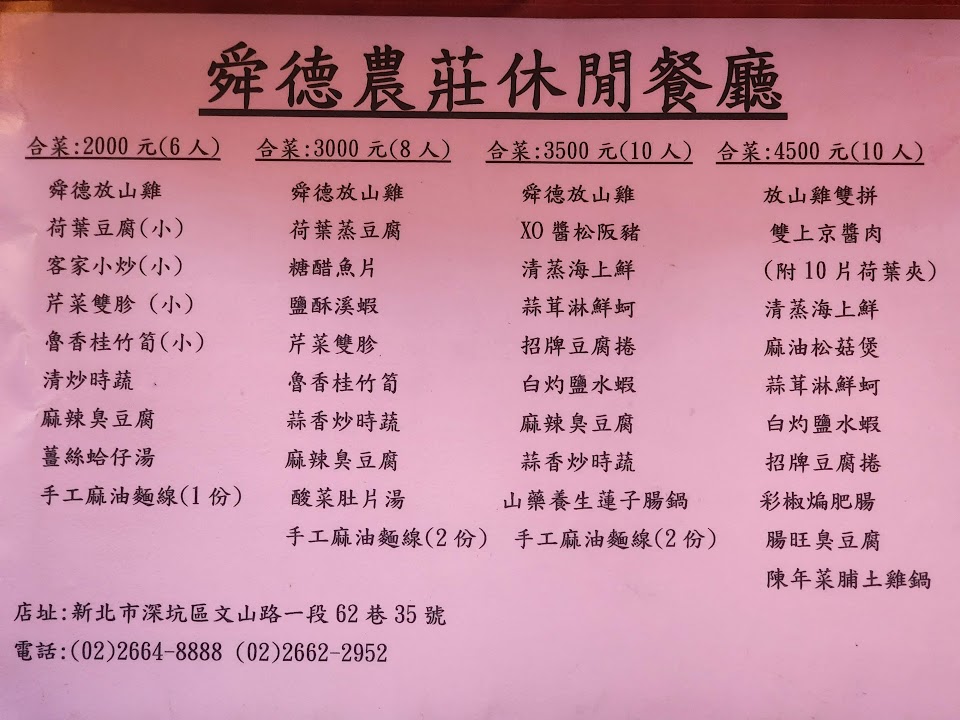 舜德農莊休閒餐廳
合菜:2000 元(6 人)
舜德放山雞
荷葉豆腐(小)
客家小炒(小)
芹菜雙胗 (小)
魯香桂竹筍(小)
清炒時蔬
麻辣臭豆腐
薑絲蛤仔湯
手工麻油麵線(1 份)
合菜:3000 元(8 人)
舜德放山雞
荷葉蒸豆腐
糖醋魚片
鹽酥溪蝦
芹菜雙胗
魯香桂竹筍
蒜香炒時蔬
麻辣臭豆腐
酸菜肚片湯
手工麻油麵線(2 份)
合菜:3500 元(10 人)
舜德放山雞
XO 醬松阪豬
清蒸海上鮮
蒜茸淋鮮蚵
招牌豆腐捲
白灼鹽水蝦
麻辣臭豆腐
蒜香炒時蔬
山藥養生蓮子腸鍋
手工麻油麵線(2 份)
合菜:4500 元(10 人)
放山雞雙拼
雙上京醬肉
(附 10 片荷葉夾)
清蒸海上鮮
麻油松菇煲
蒜茸淋鮮蚵
白灼鹽水蝦
招牌豆腐捲
彩椒煸肥腸
腸旺臭豆腐
陳年菜脯土雞鍋
店址:新北市深坑區文山路一段 62 巷 35 號
電話:(02)2664-8888 (02)2662-2952